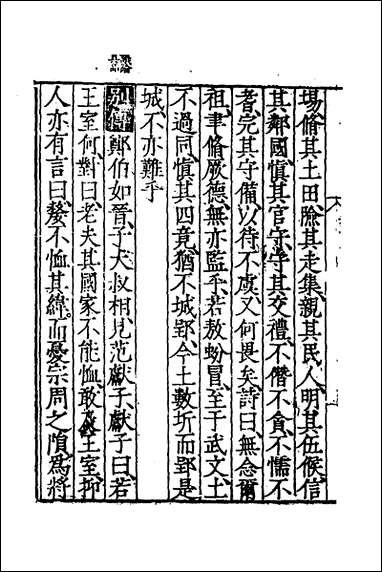 場脩其土田險其走集親其民人明其伍候信
其鄰國慎其官守守其交禮不僭不貪不懦不
耆完其守備以待不虞又何畏矣詩曰無念爾
祖聿脩厥德無亦監乎若敖蚡冒至于武文土
不過同慎其四竟猶不城郢今土數圻而郢是
城不亦難乎
別傳鄭伯如晉子大叔相見范獻子獻子曰若
王室何對曰老夫其國家不能恤敢及王室抑
人亦有言曰嫠不恤其緯而憂宗周之隕爲將